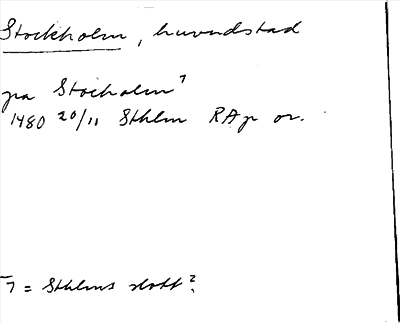 Stockholm, huvudstad
pa Stocholm⁷
1480 20/11 Sthlm RAp or.
⁷ = Sthlms slott?